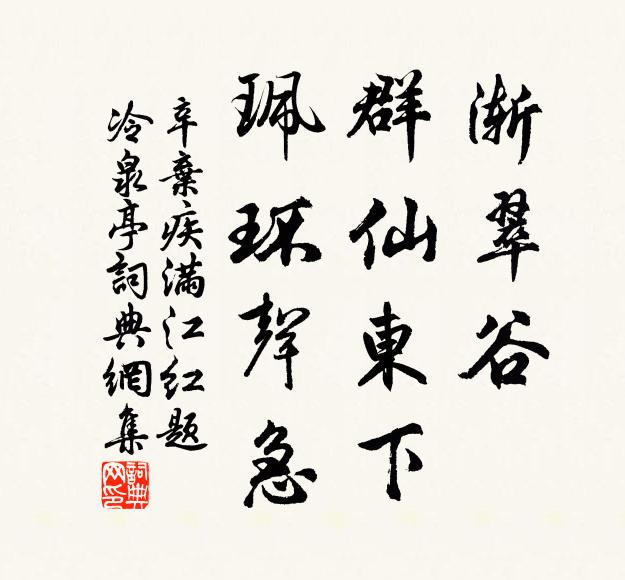 漸翠谷
群仙東下
珮環聲急
辛棄疾滿江紅題
冷泉亭詞典網集
詞典网印